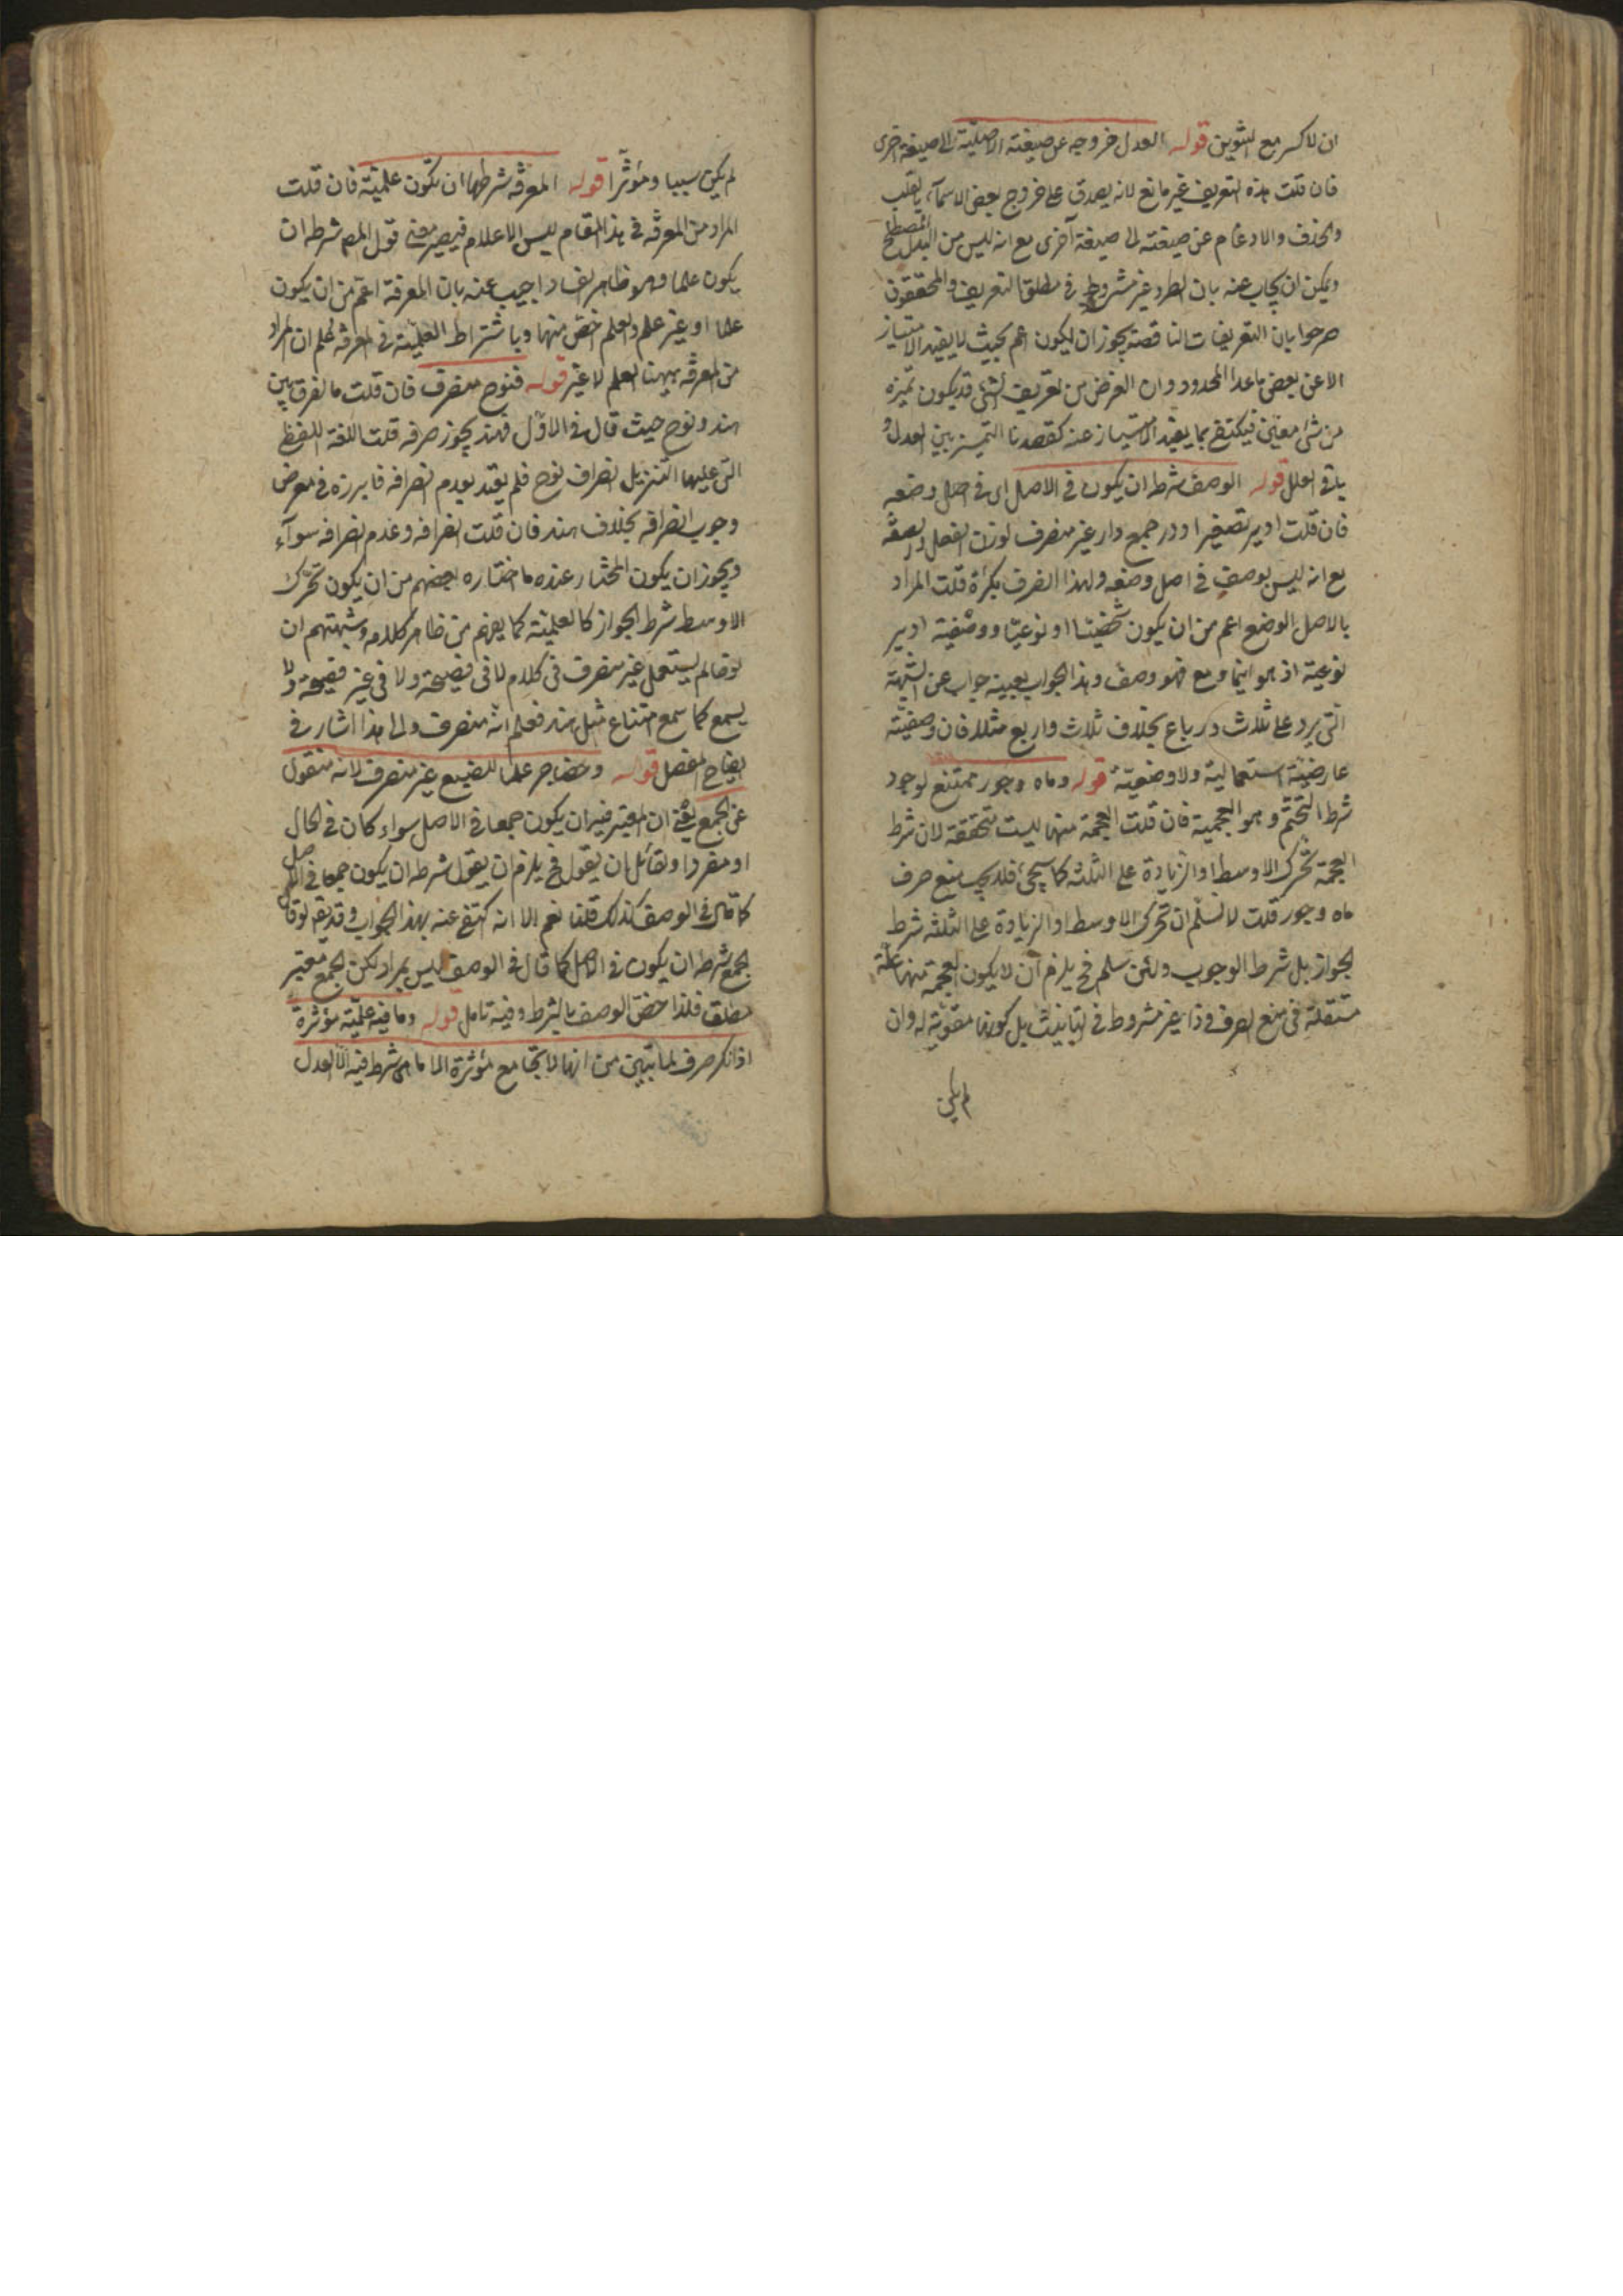 ان لا كسر مع التنوين قوله العدل خروجه عن صيغته الاصلية الى صيغة اخرى
فان قلت هذه التعريف غير مانع لانه يصدق على خروج بعض الاسماء بالقلب
والحذف والادغام عن صيغته الى صيغة اخرى مع انه ليس من العدل المصطلح
ويمكن ان يجاب عنه بان الطرد غير مشروط في مطلق التعريف والمحققون
صرحوا بان التعريفات الناقصة يجوز ان يكون اعم بحيث لا يفيد الامتياز
الا عن بعض ما عدا المحدود وان الغرض من تعريف الشئ قد يكون تميزه
من شئ معين فيكتفى بما يفيد الامتياز عنه كقصدنا التميز بين العدل و
باقى العلل قوله الوصف شرطه ان يكون في الاصل اى في اصل وضعه
فان قلت ادير تصغير ادور جمع دار غير منصرف لوزن الفعل والصفة
مع انه ليس بوصف في اصل وضعه ولهذا انصرف بكرة قلت المراد
بالاصل الوضع اعم من ان يكون شخصيا او نوعيا ووصفية ادير
نوعية اذ هو اينما وقع فهو وصف وهذا الجواب بعينه جواب عن الشبهة
التى يرد على ثلاث ورباع بخلاف ثلاث واربع مثلا فان وصفيته
عارضية استعمالية ولا وضعية قوله وماه وجور ممتنع لوجود
شرط التحتم وهو العجمية فان قلت العجمة منهما ليست متحققة لان شرط
العجمة تحرك الاوسط او الزيادة على الثلثة كما سيجئ فلا يجب منع صرف
ماه وجور قلت لا نسلم ان تحرك الاوسط او الزيادة على الثلثة شرط
الجواز بل شرط الوجوب ولئن سلم فح يلزم ان لا يكون العجمة منهما علة
مستقلة في منع الصرف وذا غير مشروط في التانيث بل كونها مقوية له وان
لم يكن
لم يكن سببا ومؤثرا قوله المعرفة شرطها ان تكون علمية فان قلت
المراد من المعرفة في هذا المقام ليس الا علام فيصير معنى قول المص شرطه ان
يكون علما وهو ظاهر الفساد اجيب عنه بان المعرفة اعم من ان يكون
علما او غير علم والعلم اخص منها وباشتراط العلمية في المعرفة علم ان المراد
من المعرفة ههنا العلم لا غير قوله فنوح منصرف فان قلت ما الفرق بين
هند ونوح حيث قال في الاول فهند يجوز صرفه قلت اللغة الفصحى
التى عليها التنزيل انصراف نوح فلم يعتد بعدم انصرافه فابرزه في معرض
وجوب انصرافه بخلاف هند فان قلت انصرافه وعدم انصرافه سواء
ويجوز ان يكون المختار عنده ما اختاره بعضهم من ان يكون تحرك
الاوسط شرط الجواز كالعلمية كما يفهم من ظاهر كلامه وشبهتهم ان
نوحا لم يستعمل غير منصرف في كلام لا في فصيحة ولا في غير فصيحة ولا
يسمع كما سمع امتناع مثل هند فعلم انه منصرف والى هذا اشار في
ايضاح المفصل قوله وحضاجر علما للضبع غير منصرف لانه منقول
عن الجمع يعنى ان المعتبر فيه ان يكون جمعا في الاصل سواء كان في الحال
او مفردا ولقائل ان يقول فح يلزم ان يقول شرطه ان يكون جمعا في الاصل
كما قال في الوصف كذلك قلنا نعم الا انه اكتفى عنه بهذا الجواب وقد يقال لو قال
الجمع شرطه ان يكون في الاصل كما قال في الوصف ليس بمراد لكن الجمع معتبر
مطلق فلذا خص الوصف بالشرط وفيه تامل قوله وما فيه علمية مؤثرة
اذا نكر صرف لما تبين من انها لا تجامع مؤثرة الا ما هى شرط فيه الا العدل